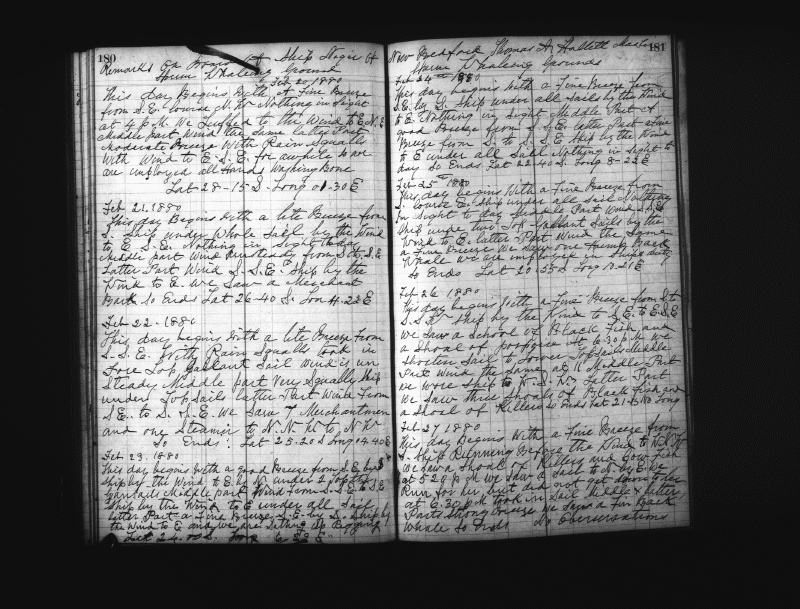 180
Remarks on Board of Ship Niger of
Sperm Whaleing Ground
Feb 20, 1880
This day Begins with A Fine Breeze
from S.E. Course N.W Nothing in Sight
at 4 P.M. We Luffed to the Wind to E.N.E
Middle part Wind the Same latter Part
Moderate Breeze With Rain Squalls
With Wind to E.S.E. for awhile
are employed all hands Washing Bone
Lat 28-15 S. Long 01.30 E
Feb 21. 1880
This day Begins with a lite Breeze from
S. Ship under Whole Sail by the Wind
to E.S.E. Nothing in Sight today
Middle part wind unsteady from S to S.E
Latter Part Wind S.S.E. Ship by the
Wind to E We Saw a Merchant
Bark So Ends Lat 26-40 S. Lon 4.22 E
Feb 22. 1880
This day begins with a lite Breeze from
S.S.E. With Rain Squalls took in
Fore Top Gallant Sail wind is un
Steady Middle part Very Squally Ship
under Topsails latter Part Wind From
S.E. to S.S.E. We Saw 7 Merchantmen
and one Steamer to N.N.W to N.W
So Ends: Lat 25-20 S Long 04.40 E
Feb 23. 1880
This day begins with a good Breeze from S.E. by S
Ship by the Wind to E. by N under 2 Top
Gansails Middle part Wind From S.S.E to S.E
Ship by the Wind to E under all Sail
latter Part a Fine Breeze S.E. by S. Ship by
the Wind to E and we are Setting Up Rigging
Lat 24.00 S. Long 6.38 E
New Bedford Thomas A. Hallett Master
181
Sperm Whaleing Grounds
Feb 24th 1880
This day begins with a Fine Breeze from
S.E. by S. Ship under all Sails by the Wind
to E Nothing in Sight Middle Part A
good Breeze from S.S.E. latter Part a Fine
Breeze from S. to S.S.E Ship by the Wind
to E under all Sail Nothing in Sight to
day So Ends Lat 22-40 S. Long 8-22 E
Feb 25th 1880
This day begins With a Fine Breeze from
S. Course E. Ship under all Sail Nothing
in Sight to day Middle Part Wind S.S.E
Ship under two Top Gallant Sails by the
Wind to E. latter Part Wind the Same
a Fine Breeze We Saw one Hump Back
Whale We are employed in Ships duty
So Ends Lat 20.55 S Long 10.21 E
Feb 26 1880
This day begins With a Fine Breeze from S. to
S.S.E Ship by the Wind to S.E. to E.S.E
We Saw a School of Black Fish and
a Shoal of porpoises At 6.30 P.M We
Shorten Sail to Lower Topsails Middle
Part Wind the Same at 11 Middle Part
We wore Ship to W.S.W Latter Part
We Saw three Shoals of Black Fish and
a Shoal of Killers So Ends Lat 21-6 No Long
Feb 27 1880
This day Begins With a Fine Breeze from
S. Ship Running Before the Wind to
We Saw a Shoal of Killers and Cow Fish
at 5.20 P.M We Saw a Sail to N. by E. We
Run for her but did not get down to her
at 6.30 P.M took in Sail Middle & latter
Parts Strong Breeze We Saw a Fin Back
Whale So Ends No Observations